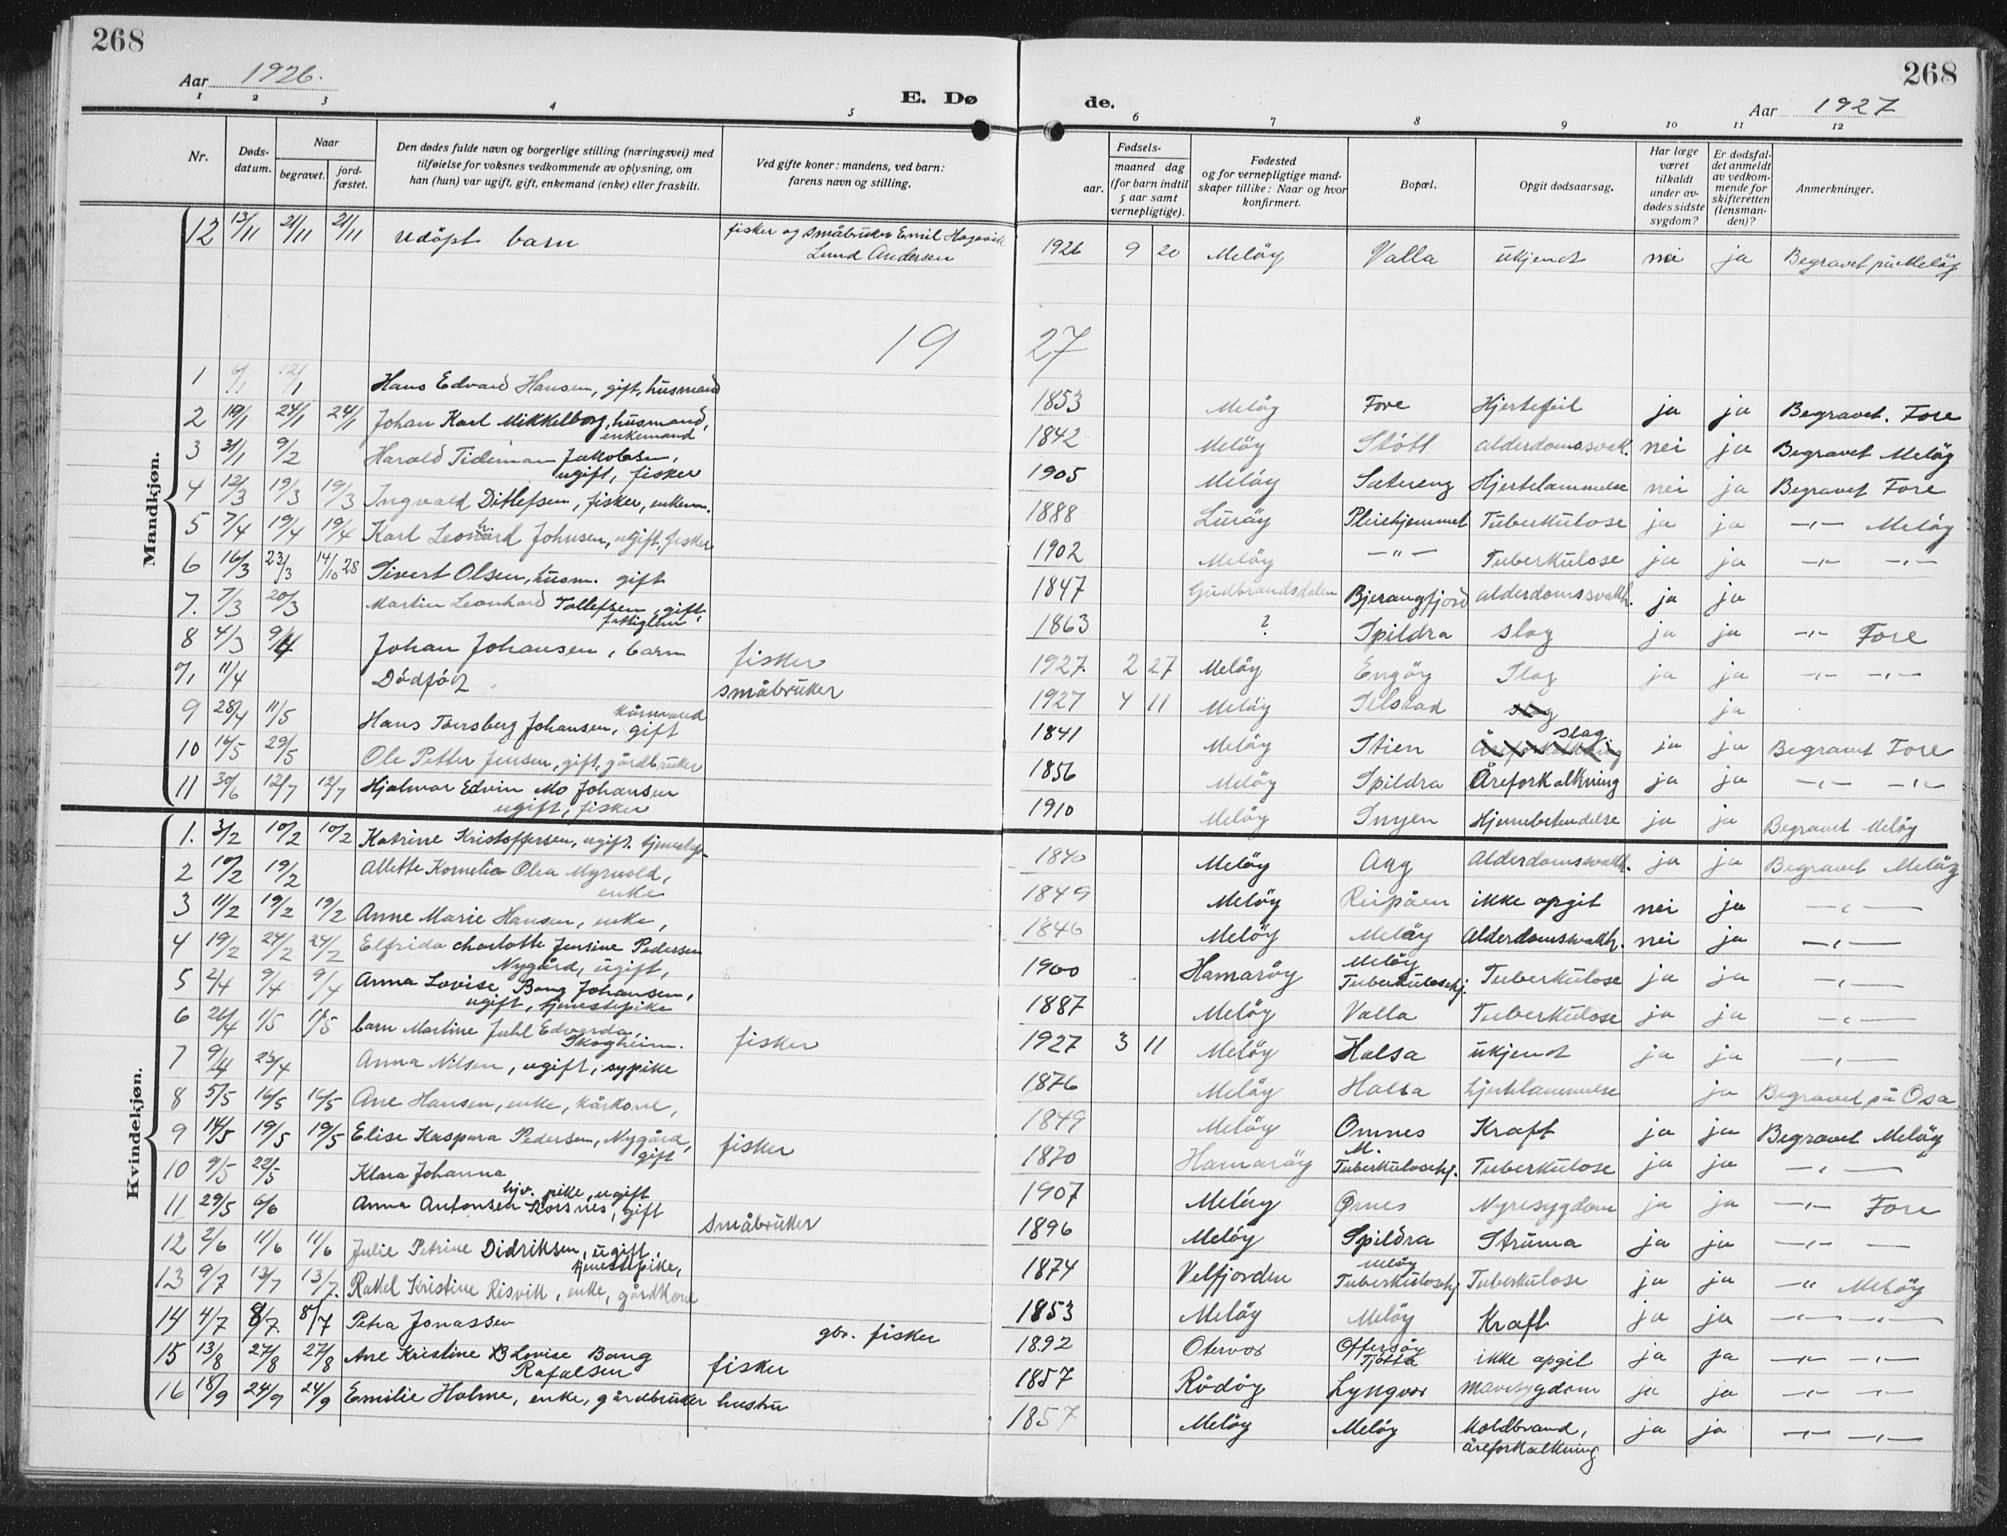 268
268
Aar 1926.
E. Dø
de.
Aar 1927
1 2 3 4 5 6 7 8 9 10 11 12
Nr.
Døds-
datum.
Naar
begravet.
jord-
fæstet.
Den dødes fulde navn og borgerlige stilling (næringsvei) med
tilføielse for voksnes vedkommende av oplysning, om
han (hun) var ugift, gift, enkemand (enke) eller fraskilt.
Ved gifte koner: mandens, ved barn:
farens navn og stilling.
Fødsels-
aar.
maaned dag
(for barn indtil
5 aar samt
vernepligtige).
Fødested
og for vernepligtige mand-
skaper tillike: Naar og hvor
konfirmert.
Bopæl.
Opgit dødsaarsag.
Har læge
været
tilkaldt
under av-
dødes sidste
sygdom?
Er dødsfal-
det anmeldt
av vedkom-
mende for
skifteretten
(lensman-
den)?
Anmerkninger.
Mandkjøn.
12 13/11 21/11 21/11 udöpt barn fisker og småbruker Emil Hagevik
Lund Andersen 1926 9 20 Melöy Valla ukjendt nei ja Begravet på Melöy
19 27
1 6/1 12/1 Hans Edvard Hansen, gift, husmand 1853 Melöy Fore Hjertefeil ja ja Begravet. Fore
2 19/1 24/1 24/1 Johan Karl Mikkelborg, husmand,
enkemand 1842 Melöy Stött alderdomssvak. nei ja Begravet Melöy
3 31/1 9/2 Harald Tideman Jakobsen,
ugift, fisker 1905 Melöy Sætereng Hjertelammelse nei ja Begravet Fore
4 12/3 19/3 19/3 Ingvald Ditlefsen, fisker, enkem. 1888 Luröy Pleiehjemmet Tuberkulose ja ja —„— Melöy
5 7/4 19/4 19/4 Karl Leonhard Johnsen, ugift, fisker 1902 Melöy —„— Tuberkulose ja ja —„— —„—
6 16/3 23/3 14/10 28 Sivert Olsen, husm. gift 1847 Gudbrandsdalen Bjerangfjord alderdomssvakh. ja ja
7. 7/3 20/3 Martin Leonhard Tollefsen, gift, 1863 ? Spildra slag ja ja —„— Fore
8 4/3 9/4 Johan Johansen, barn fisker 1927. 2 27 Melöy Engöy Slag ja ja —„— —„—
7, 11/4 Dödföd småbruker 1927 4 11 Melöy Selstad ja
9 28/4 11/5 Hans Torsberg Johansen, kårmand
gift 1841 Melöy Stien Slag ja ja Begravet Fore
10 16/5 29/5 Ole Petter Jensen, gift, gårdbruker 1856 Melöy Spildra Åreforkalkning ja ja —„— —„—
11 30/6 12/7 12/7 Hjalmar Edvin Mo Johansen
ugift, fisker 1910 Melöy Inyen Hjernebetendelse ja ja Begravet Melöy
Kvindekjøn.
1. 3/2 10/2 10/2 Katrine Kristoffersen, ugift. 1840 Melöy Aag Alderdomsvakh. ja ja Begravet Melöy
2 10/2 19/2 Allette Kornelia Olea Myrvold,
enke 1849 Melöy Reipåen ikke opgit nei ja —„—
3 11/2 19/2 19/2 Anne Marie Hansen, enke, 1846 Melöy Melöy Alderdomsvakh. nei ja —„—
4 19/2 24/2 24/2 Elfrida charlotte Jensine Pedersen
Nygård, ugift, 1900 Hamaröy Melöy
Tuberkulosehj. Tuberkulose ja ja —„—
5 2/4 9/4 9/4 Anna Lovise Bang Johansen,
ugift, tjenestepike 1887 Melöy Valla Tuberkulose ja ja —„—
6 26/4 1/5 1/5 barn Martine Juhl Edvarda,
Skogheim. fisker 1927 3 11 Melöy Halsa ukjendt ja ja —„—
7 9/4 23/4 Anna Nilsen, ugift, sypike 1876 Melöy Halsa hjertelammelse ja Begravet på Osa
8 5/5 16/5 16/5 Ane Hansen, enke, kårkone, 1849 Melöy Omnes Kraft ja ja Begravet Melöy
9 14/5 19/5 19/5 Elise Kaspara Pedersen, Nygård,
gift fisker 1870 Hamaröy M.
Tuberkulosehj. Tuberkulose ja ja —„—
10 9/5 22/5 Klara Johanna
hjv. pike, ugift 1907 Melöy Ørnes Nyresygdom ja ja —„— Fore
11 29/5 6/6 Anna Antonsen Korsnes, gift småbruker 1896 Melöy Spildra Struma ja ja —„— —
12 2/6 11/6 11/6 Julie Petrine Didriksen, ugift.
tjenestepike, 1874 Velfjorden Melöy
Tuberkulosehj Tuberkulose ja ja —„ Melöy
13 9/7 13/7 13/7. Rakel Kristine Risvik, enke, gårdkone 1853 Melöy Melöy Kraft ja ja —„— —„—
14 4/7 8/7. 8/7 Petra Jonassen gbr. fisker 1892 Otervor Offersöy
Tjøtta ikke opgit ja ja —„— —„—
15 13/8 27/8 27/8 Ane Kristine Lovise Bang
Rafaelsen fisker 1857 Rödöy Lyngvor Mavesygdom ja ja —„— —„—
16 18/9 24/9 24/9 Emilie Holme, enke, gårdbruker hustru 1857 Melöy Melöy Koldbrand,
åreforkalkning ja ja —„— —„—